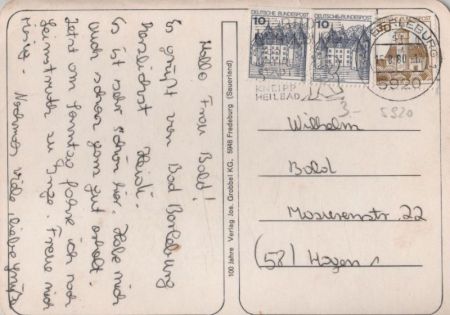 Hallo Frau Bold!
Es grüßt von Bad Berleburg
herzlichst Heidi.
Es ist sehr schön hier. Habe mich
auch schon ganz gut erholt.
Jetzt am Sonntag fahre ich nach
zu Inge. Freue mich
Nochmals viele liebe Grüße
100 Jahre Verlag Jos. Grobbel KG, 5948 Fredeburg (Sauerland)
10 DEUTSCHE BUNDESPOST
10 DEUTSCHE BUNDESPOST
BERLEBURG
5920
KNEIPP
HEILBAD
3-
5920
Wilhelm
Bold
22
(58) Hagen 1